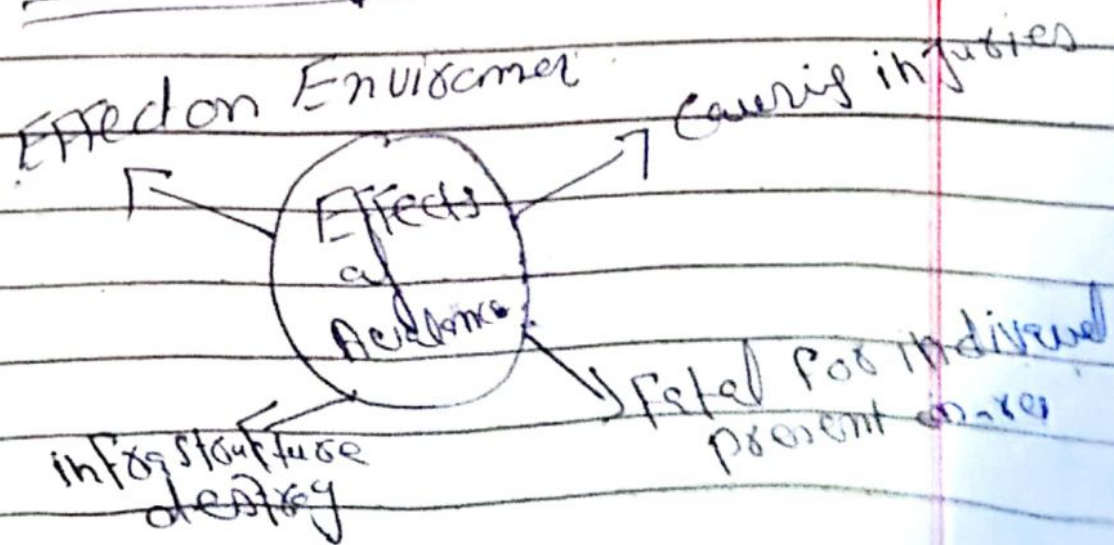 Effect on Enviromen
Causig injuries
Effects
of
Accidence
Fatal for individual
present in area
infrastructure
destroy